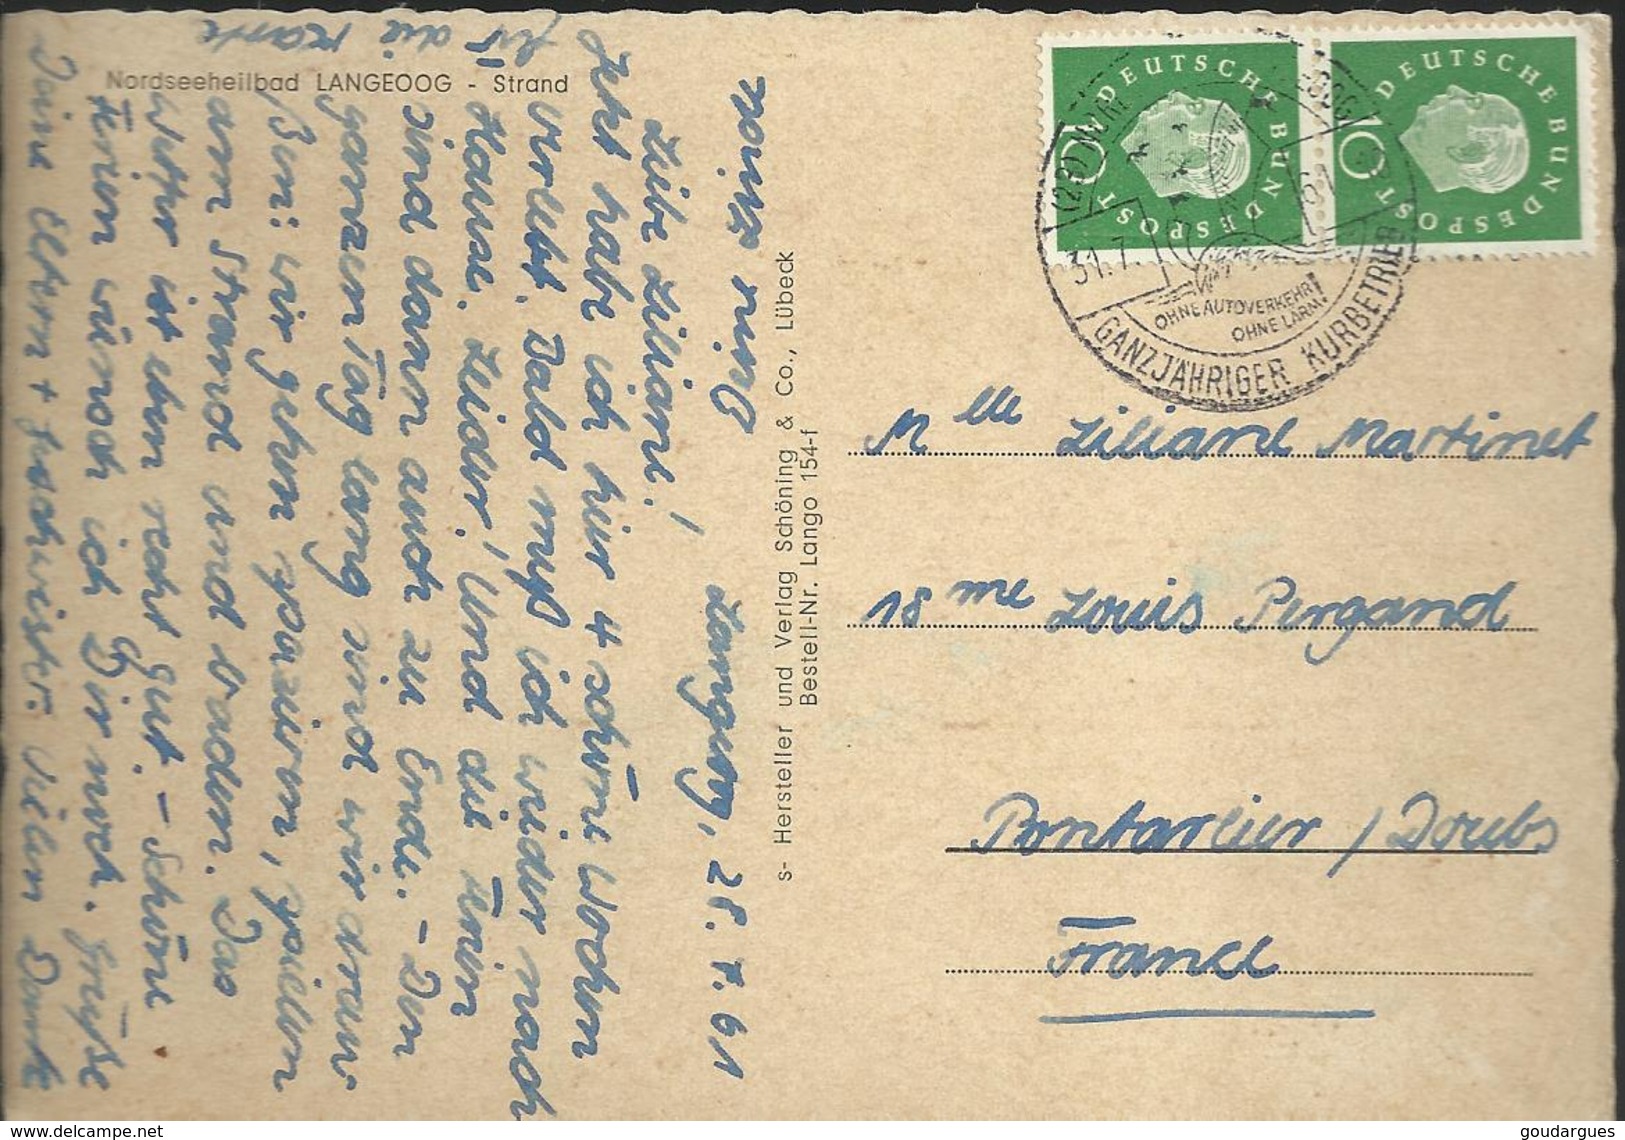 Nordseeheilbad LANGEOOG - Strand
Langeoog, 28. 7. 61
Liebe Liliane!
Jetzt habe ich hier 4 schöne Wochen
verlebt. Bald muß ich wieder nach
Hause. Leider! Und die Ferien
sind dann auch zu Ende. - Den
ganzen Tag lang sind wir drau-
ßen: wir gehen spazieren, spielen
am Strand und baden. Das
Wetter ist eben recht gut. - Schöne
Ferien wünsch ich Dir noch. Grüße
Deine Eltern + Geschwister. Vielen Dank
für die Karte
s- Hersteller und Verlag Schöning & Co., Lübeck
Bestell-Nr. Lango 154-f
DEUTSCHE BUNDESPOST
10
DEUTSCHE BUNDESPOST
10
31.7. 61
OHNE AUTOVERKEHR
OHNE LÄRM!
GANZJÄHRIGER KURBETRIEB
Mlle Liliane Martinet
18me Louis Pergaud
Pontarlier / Doubs
France
www.delcampe.net
goudargues